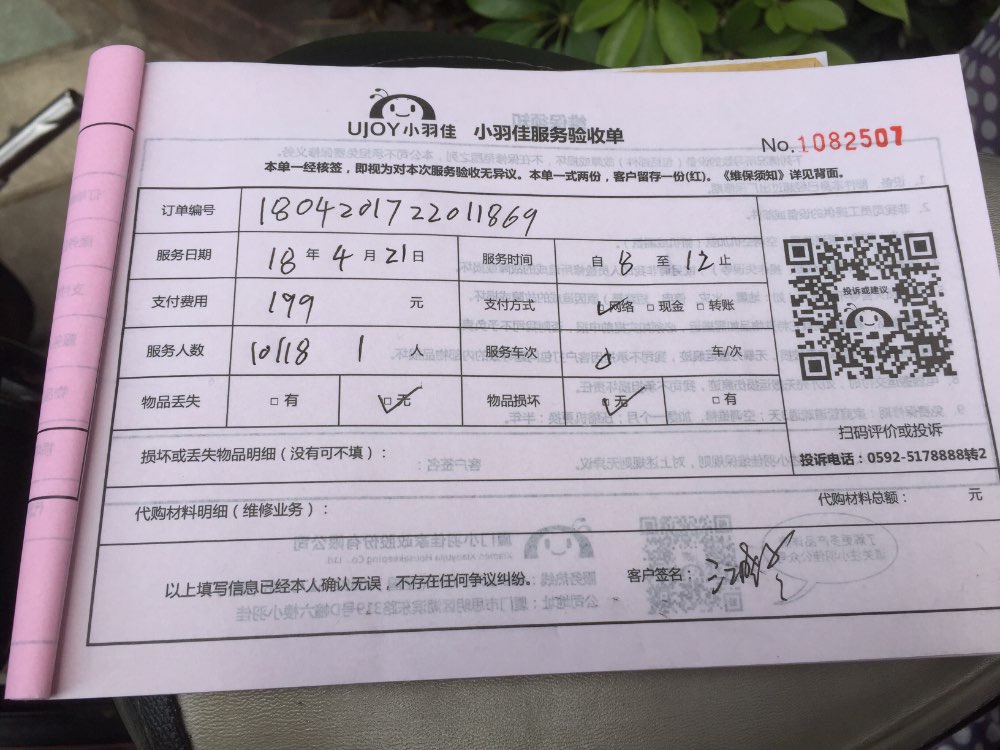 UJOY小羽佳 小羽佳服务验收单
No.1082507
本单一经核签，即视为对本次服务验收无异议。本单一式两份，客户留存一份(红)。《维保须知》详见背面。
订单编号 180420172201 1869
服务日期 18 年 4 月 21 日 服务时间 自 8 至 12 止
支付费用 199 元 支付方式 ☑网络 □现金 □转账
服务人数 10118 1 人 服务车次 车/次
物品丢失 □有 ☑无 物品损坏 ☑无 □有
投诉或建议
扫码评价或投诉
投诉电话：0592-5178888转2
损坏或丢失物品明细（没有可不填）：
代购材料明细（维修业务）： 代购材料总额： 元
以上填写信息已经本人确认无误，不存在任何争议纠纷。 客户签名：